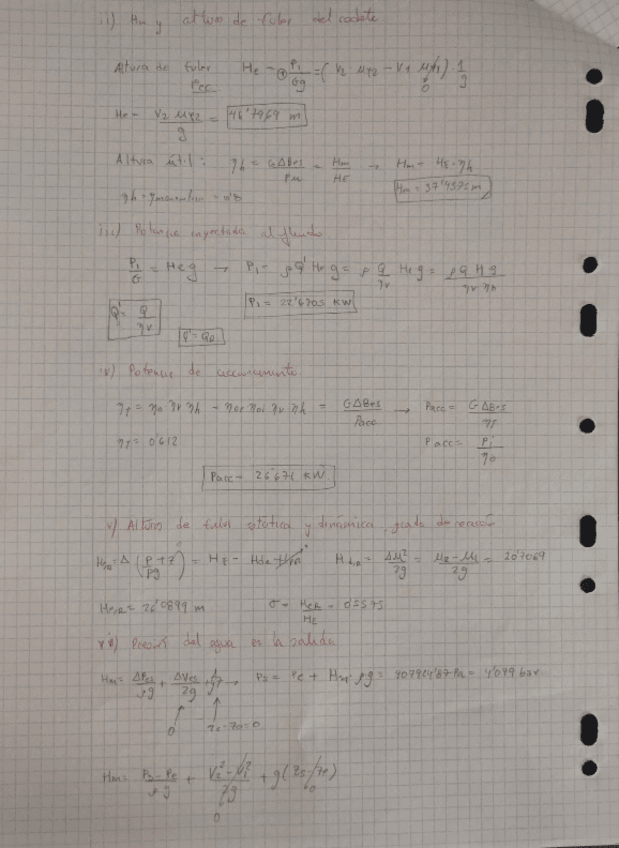 ii) Hm y altura de Euler del rodete
Altura de Euler He = P1/Gg = (V2 · μy2 − V1 μy1) · 1/g
Pec 0
He = V2 μy2 / g = 46'7969 m
Altura útil: ηh = GΔBes/Pm = Hm/HE → Hm = HE · ηh
ηh = ηmanométrico = 0'8 Hm = 37'4375 m
iii) Potencia inyectada al fluido
P1/G = He g → P1 = ρ Q' He g = ρ Q/ηv He g = ρ Q H g / ηv ηh
Q' = Q/ηv P1 = 22'6705 KW
Q' = QR
iv) Potencia de accionamiento
ηT = ηo ηv ηh = GΔBes/Pacc → Pacc = GΔBes/ηT
ηT = 0'612 Pacc = Pi/ηo
Pacc = 26'671 KW
v) Alturas de Euler estática y dinámica, grado de reacción
= Δ (P/ρg + z) = HE − Hd,R = Δμ²/2g = 20'7069
= 26'0899 m σ = /HE = 0'5575
Presión del agua en la salida
Hm = ΔPes/ρg + ΔVes/2g + → Ps = Pe + Hm · ρg = 407904'87 Pa = 4'079 bar
0 zs − ze = 0
Hm = Ps − Pe / ρg + V2² − V1² / 2g + g(zs − ze)
0 0